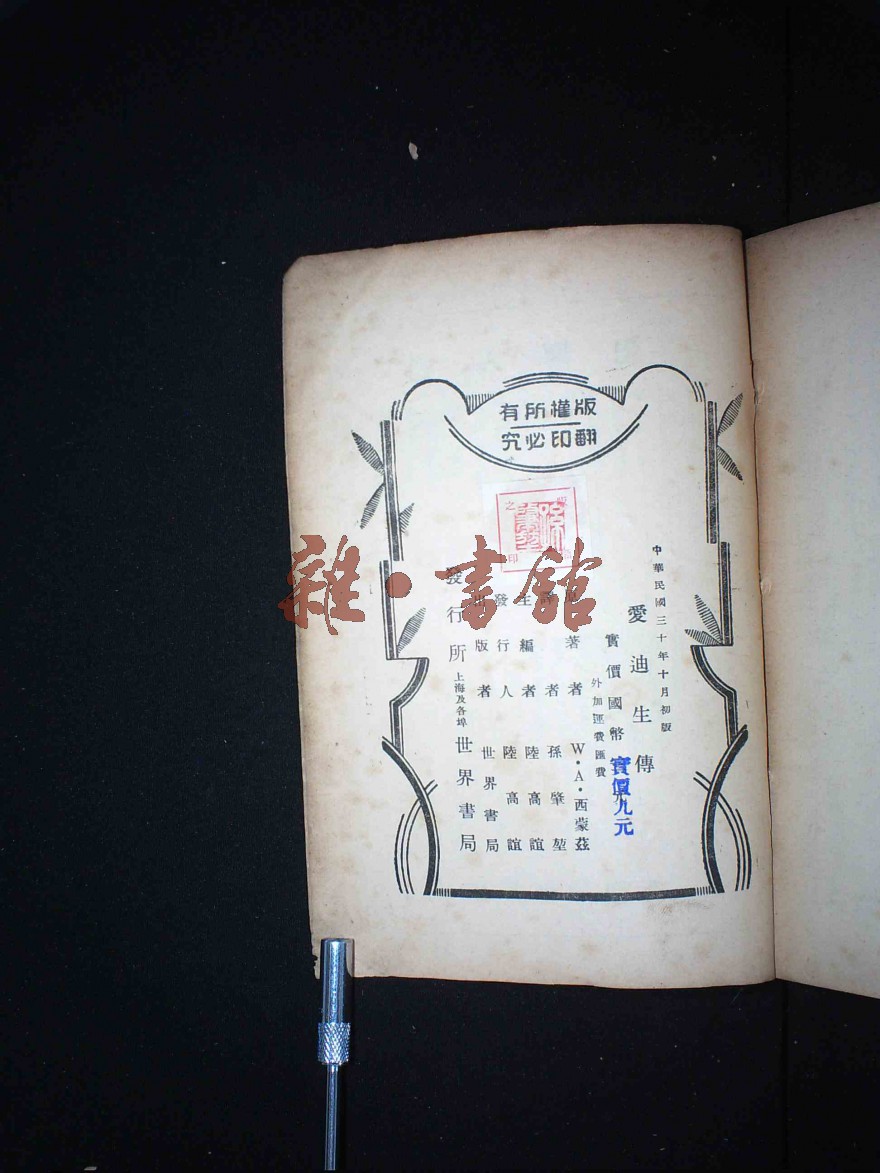 版權所有
翻印必究
中華民國三十年十月初版
愛迪生傳
實價國幣
實價九元
外加運費匯費
著者 W·A·西蒙茲
者 孫肇堃
主編者 陸高誼
發行人 陸高誼
出版者 世界書局
發行所 上海及各埠 世界書局
雜·書館